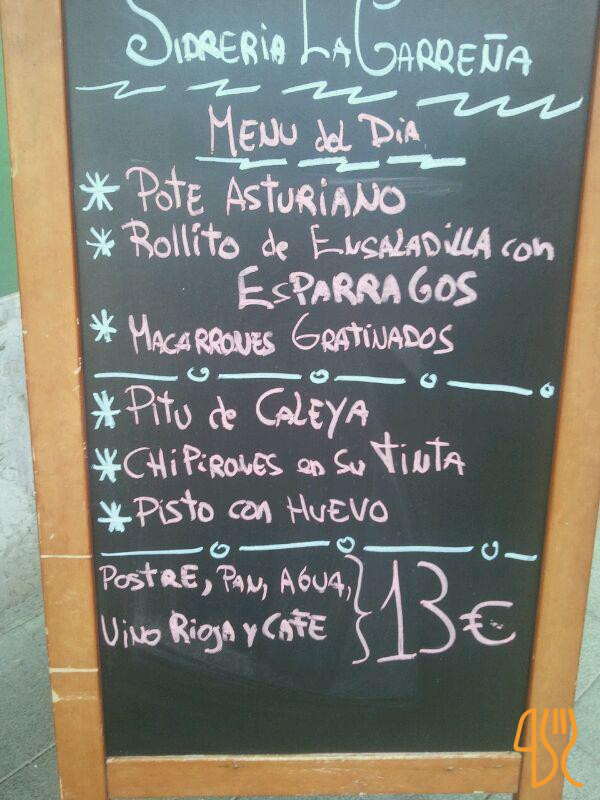 SIDRERIA LA CARREÑA
MENU del DIA
* POTE ASTURIANO
* Rollito de ENSALADILLA con
ESPARRAGOS
* MACARRONES GRATINADOS
* PITU de CALEYA
* CHIPIRONES en Su TINTA
* PISTO con HUEVO
POSTRE, PAN, AGUA,
VINO RIOJA y CAFE } 13€